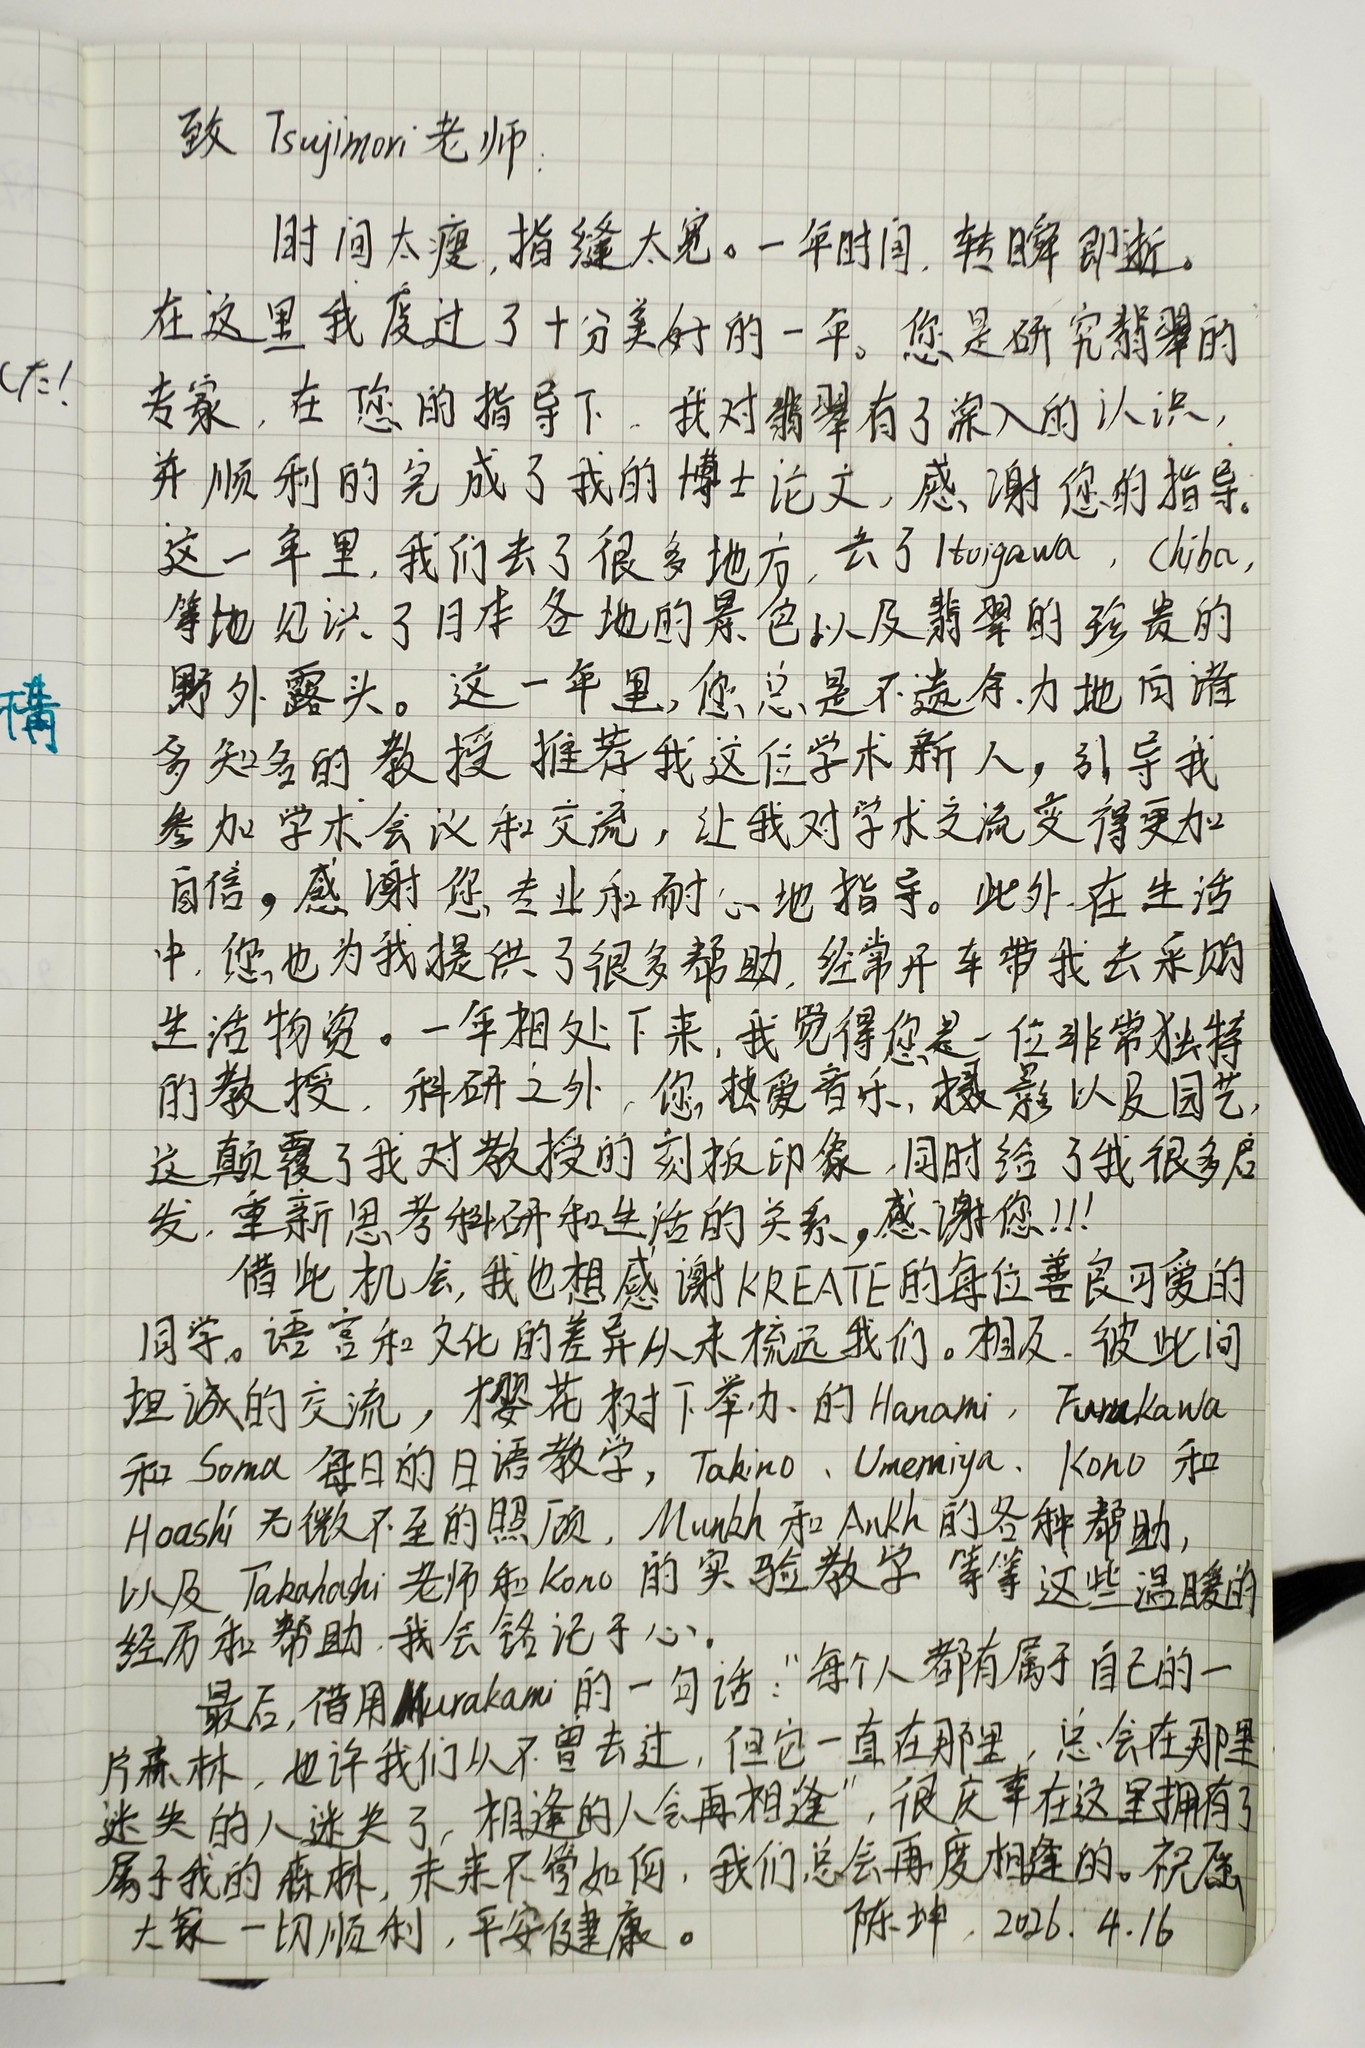 致 Tsujimori 老师:
时间太瘦,指缝太宽。一年时间,转瞬即逝。
在这里我度过了十分美好的一年。您是研究翡翠的
专家,在您的指导下,我对翡翠有了深入的认识,
并顺利的完成了我的博士论文,感谢您的指导。
这一年里,我们去了很多地方,去了Itoigawa,Chiba,
等地见识了日本各地的景色以及翡翠的珍贵的
野外露头。这一年里,您总是不遗余力地向诸
多知名的教授推荐我这位学术新人,引导我
参加学术会议和交流,让我对学术交流变得更加
自信,感谢您专业和耐心地指导。此外,在生活
中,您也为我提供了很多帮助,经常开车带我去采购
生活物资。一年相处下来,我觉得您是一位非常独特
的教授,科研之外,您热爱音乐,摄影以及园艺,
这颠覆了我对教授的刻板印象,同时给了我很多启
发,重新思考科研和生活的关系,感谢您!!!
借此机会,我也想感谢KREATE的每位善良可爱的
同学。语言和文化的差异从未梳远我们。相反,彼此间
坦诚的交流,樱花树下举办的Hanami,Furukawa
和Soma每日的日语教学,Takino、Umemiya、Kono和
Hoashi无微不至的照顾,Munkh和Ankh的各种帮助,
以及Takahashi老师和Kono的实验教学等等这些温暖的
经历和帮助,我会铭记于心。
最后,借用Murakami的一句话:“每个人都有属于自己的一
片森林,也许我们从不曾去过,但它一直在那里,总会在那里
迷失的人迷失了,相逢的人会再相逢”,很庆幸在这里拥有了
属于我的森林,未来不管如何,我们总会再度相逢的。祝愿
大家一切顺利,平安健康。 陈坤,2026.4.16
した!
構